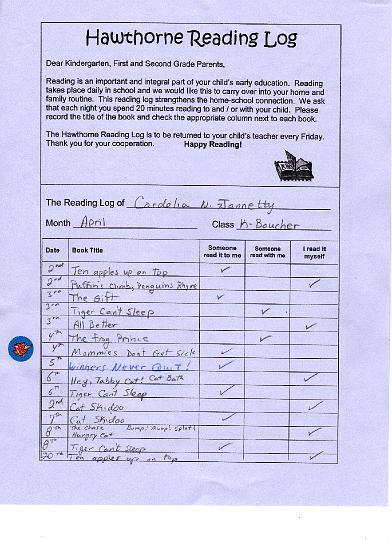 Hawthorne Reading Log
Dear Kindergarten, First and Second Grade Parents,
Reading is an important and integral part of your child's early education. Reading
takes place daily in school and we would like this to carry over into your home and
family routine. This reading log strengthens the home-school connection. We ask
that each night you spend 20 minutes reading to and / or with your child. Please
record the title of the book and check the appropriate column next to each book.
The Hawthorne Reading Log is to be returned to your child's teacher every Friday.
Thank you for your cooperation. Happy Reading!
The Reading Log of Cordelia N. Jannetty
Month April Class K-Boucher
Date Book Title Someone read it to me Someone read with me I read it myself
2nd Ten apples up on top ✓
2nd Puffin's climb, Penguins Rhyme ✓
3rd The Gift ✓
3rd Tiger Can't Sleep ✓
3rd All Better ✓
4th The Frog Prince ✓
4th Mommies Dont Get Sick ✓
5th Winners Never Quit! ✓
6th Tabby Cat! Cat Bath ✓
6th Tiger Cant Sleep ✓
2nd Cat Skidoo ✓
7th Cat Skidoo ✓
8th The Chase Bump! Bump! Splat!
Hungry Cat ✓
8th Tiger Can't Sleep ✓
20th Ten apples up on top ✓